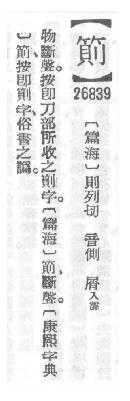 26839
〔篇海〕則列切 音側 屑入聲
物斷聲。按卽刀部所收之字。〔篇海〕、斷聲。〔康熙字典
〕、按卽字、俗書之譌。